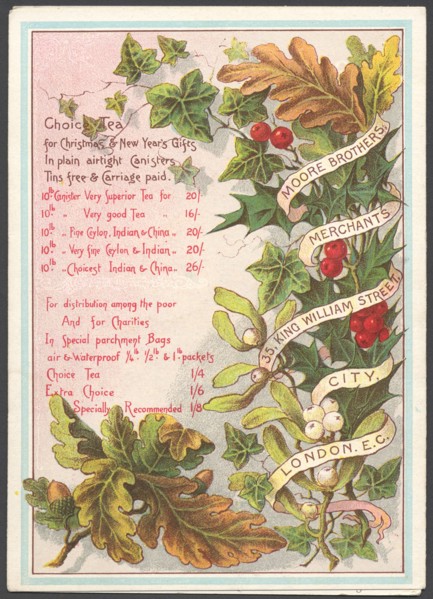 Choice Tea
for Christmas & New Year's Gifts
In plain airtight Canisters
Tins free & Carriage paid.
10lb Canister Very Superior Tea for 20/-
10lb „ Very good Tea „ 16/-
10lb „ Fine Ceylon, Indian & China „ 20/-
10lb „ Very fine Ceylon & Indian „ 20/-
10lb „ Choicest Indian & China „ 26/-
For distribution among the poor
And for Charities
In Special parchment Bags
air & Waterproof 1/4lb 1/2lb & 1lb packets
Choice Tea 1/4
Extra Choice 1/6
Specially Recommended 1/8
MOORE BROTHERS,
MERCHANTS
35, KING WILLIAM STREET,
CITY,
LONDON. E.C.